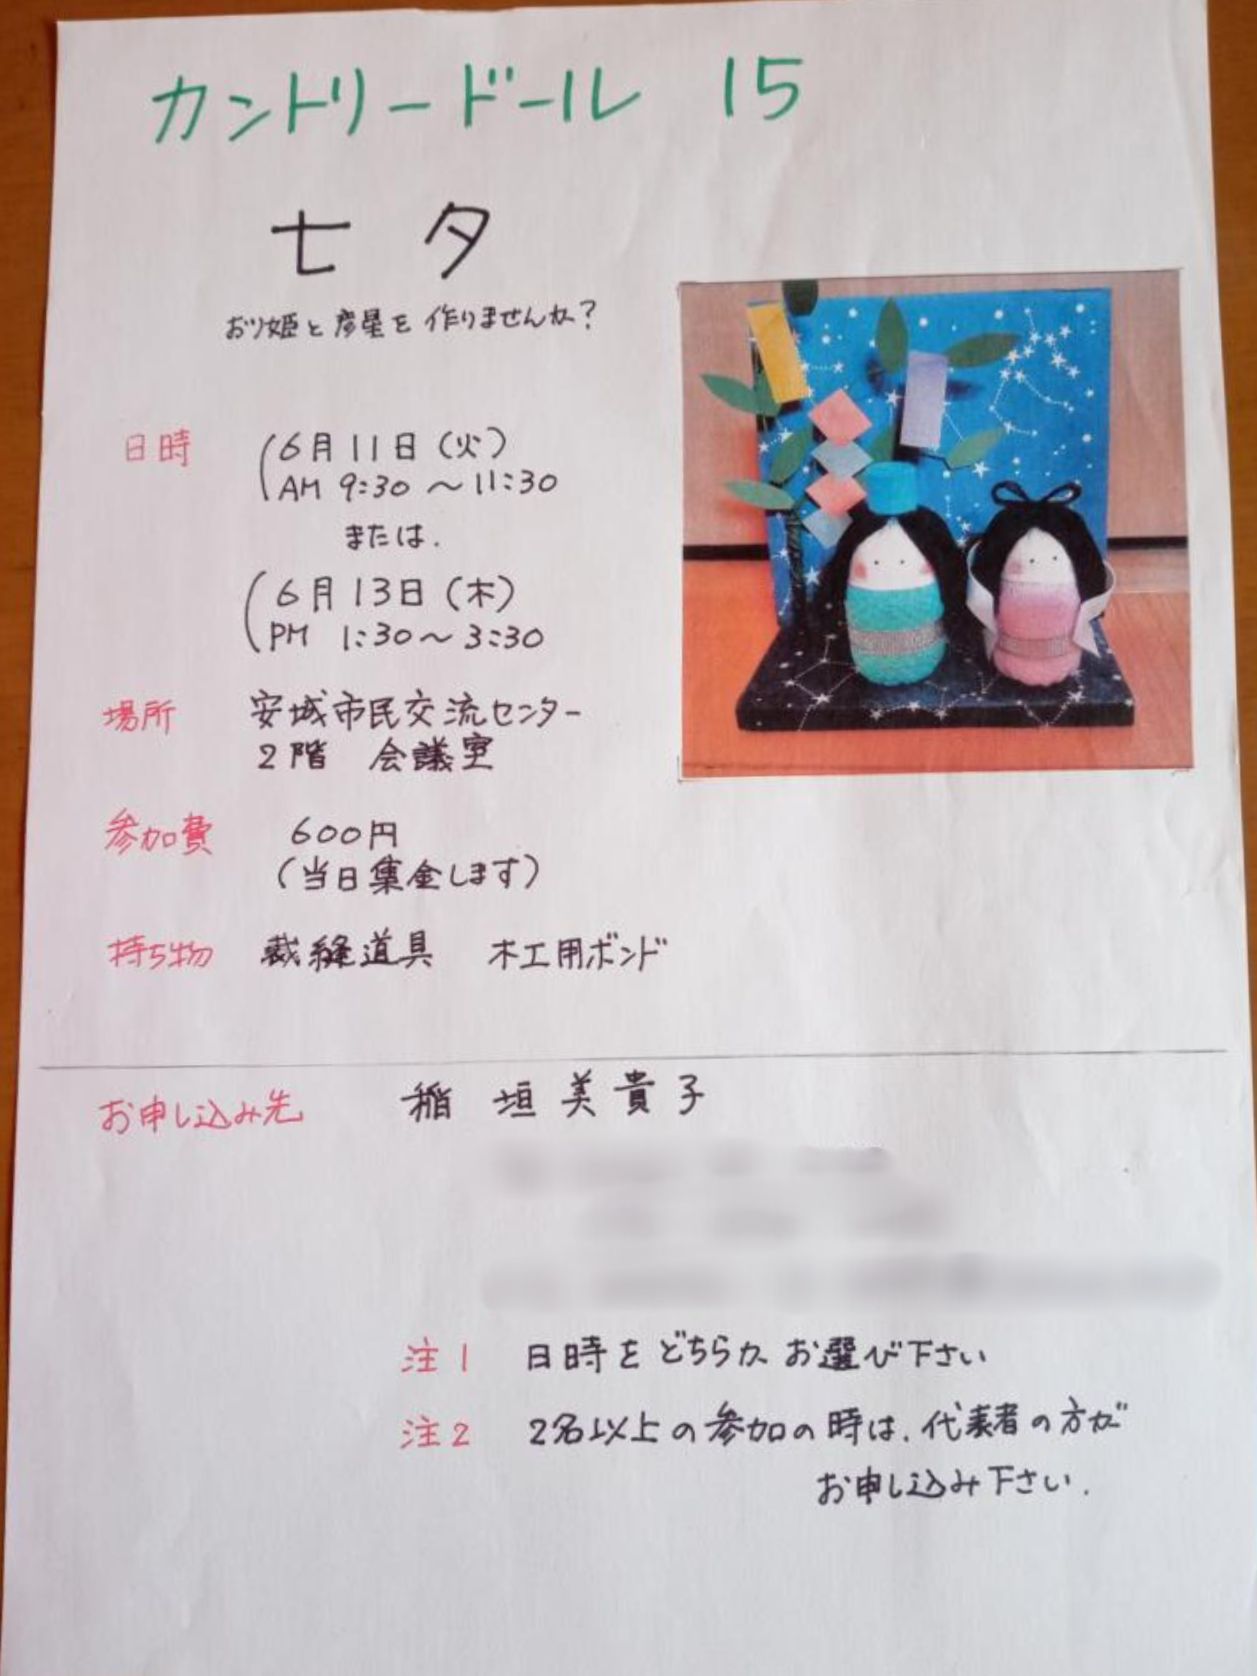 カントリードール 15
七夕
おり姫と彦星を作りませんか?
日時 6月11日(火)
AM 9:30 〜 11:30
または.
6月13日(木)
PM 1:30〜3:30
場所 安城市民交流センター
2階 会議室
参加費 600円
(当日集金します)
持ち物 裁縫道具 木工用ボンド
お申し込み先 稲垣美貴子
注1 日時をどちらかお選び下さい
注2 2名以上の参加の時は、代表者の方が
お申し込み下さい.